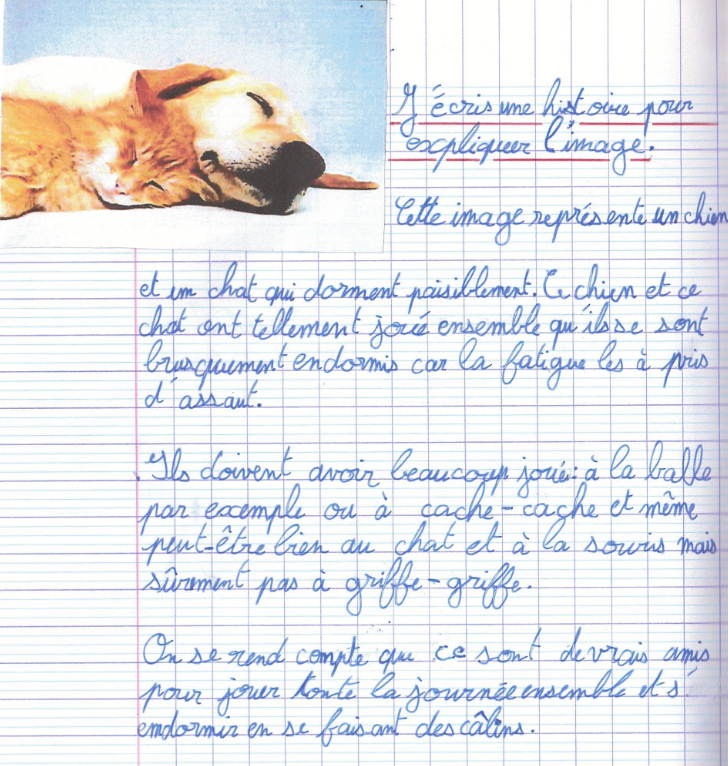 J'écris une histoire pour
expliquer l'image.
Cette image représente un chien
et un chat qui dorment paisiblement. Ce chien et ce
chat ont tellement joué ensemble qu'ils se sont
brusquement endormis car la fatigue les à pris
d'assaut.
Ils doivent avoir beaucoup joué: à la balle
par exemple ou à cache-cache et même
peut-être bien au chat et à la souris mais
sûrement pas à griffe-griffe.
On se rend compte que ce sont de vrais amis
pour jouer toute la journée ensemble et s'
endormir en se faisant des câlins.